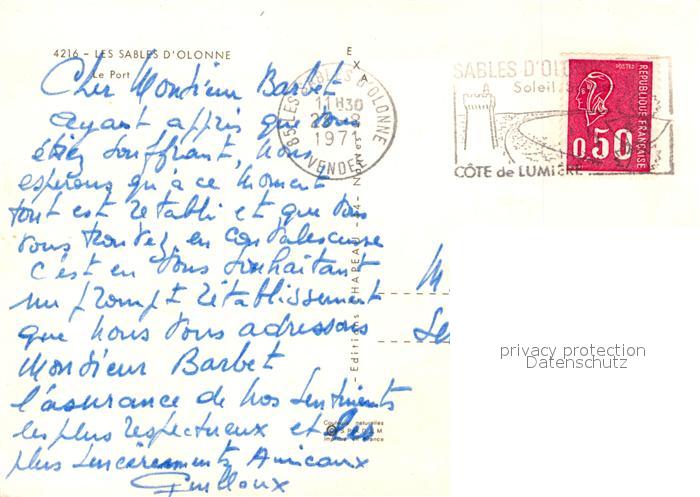 4216 - LES SABLES D'OLONNE
Le Port
Cher Monsieur Barbet
ayant appris que vous
étiez souffrant, nous
espérons qu'à ce moment
tout est rétabli et que vous
vous trouvez en convalescence
c'est en vous souhaitant
un prompt rétablissement
que nous vous adressons
Monsieur Barbet
l'assurance de nos sentiments
les plus respectueux et les
plus sincèrements Amicaux
Guilloux
EXA
- Editions CHAPEAU - 44 - Nantes
Couleurs naturelles
Imprimé en France
85 LES SABLES D'OLONNE
11H30
1971
VENDEE
SABLES D'OLO
Soleil
CÔTE de LUMIÈRE
POSTES
REPUBLIQUE FRANÇAISE
0,50
M
privacy protection
Datenschutz